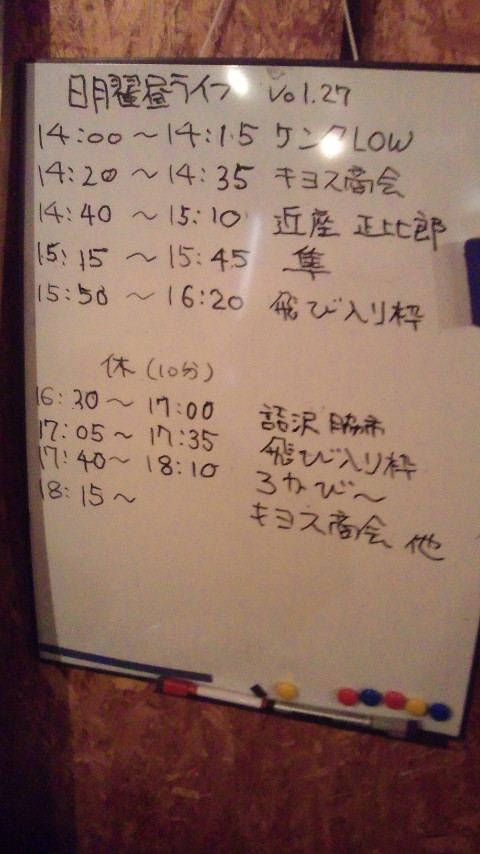 日曜昼ライブ vol.27
14:00 ～ 14:15 ケンタLOW
14:20 ～ 14:35 キヨス商会
14:40 ～ 15:10 近座 正比郎
15:15 ～ 15:45 隼
15:50 ～ 16:20 飛び入り枠
休 (10分)
16:30～ 17:00
17:05～ 17:35 飛び入り枠
17:40～ 18:10 ろかび～
18:15～ キヨス商会 他